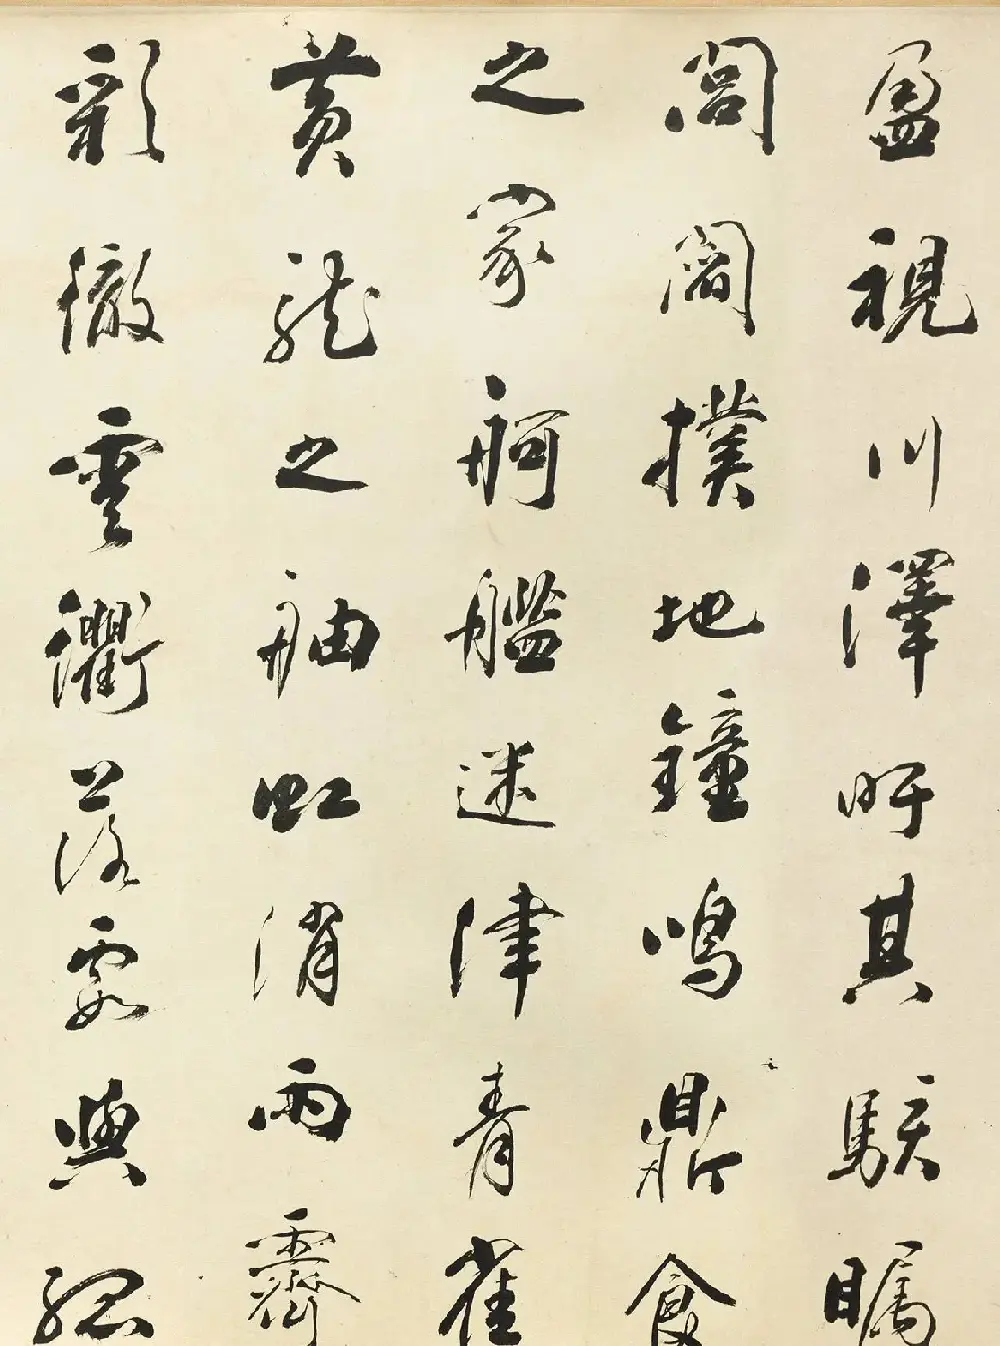 盈視川澤盱其駭矚
閭閻撲地鐘鳴鼎食
之家舸艦迷津青雀
黃龍之舳虹消雨霽
彩徹雲衢落霞與孤